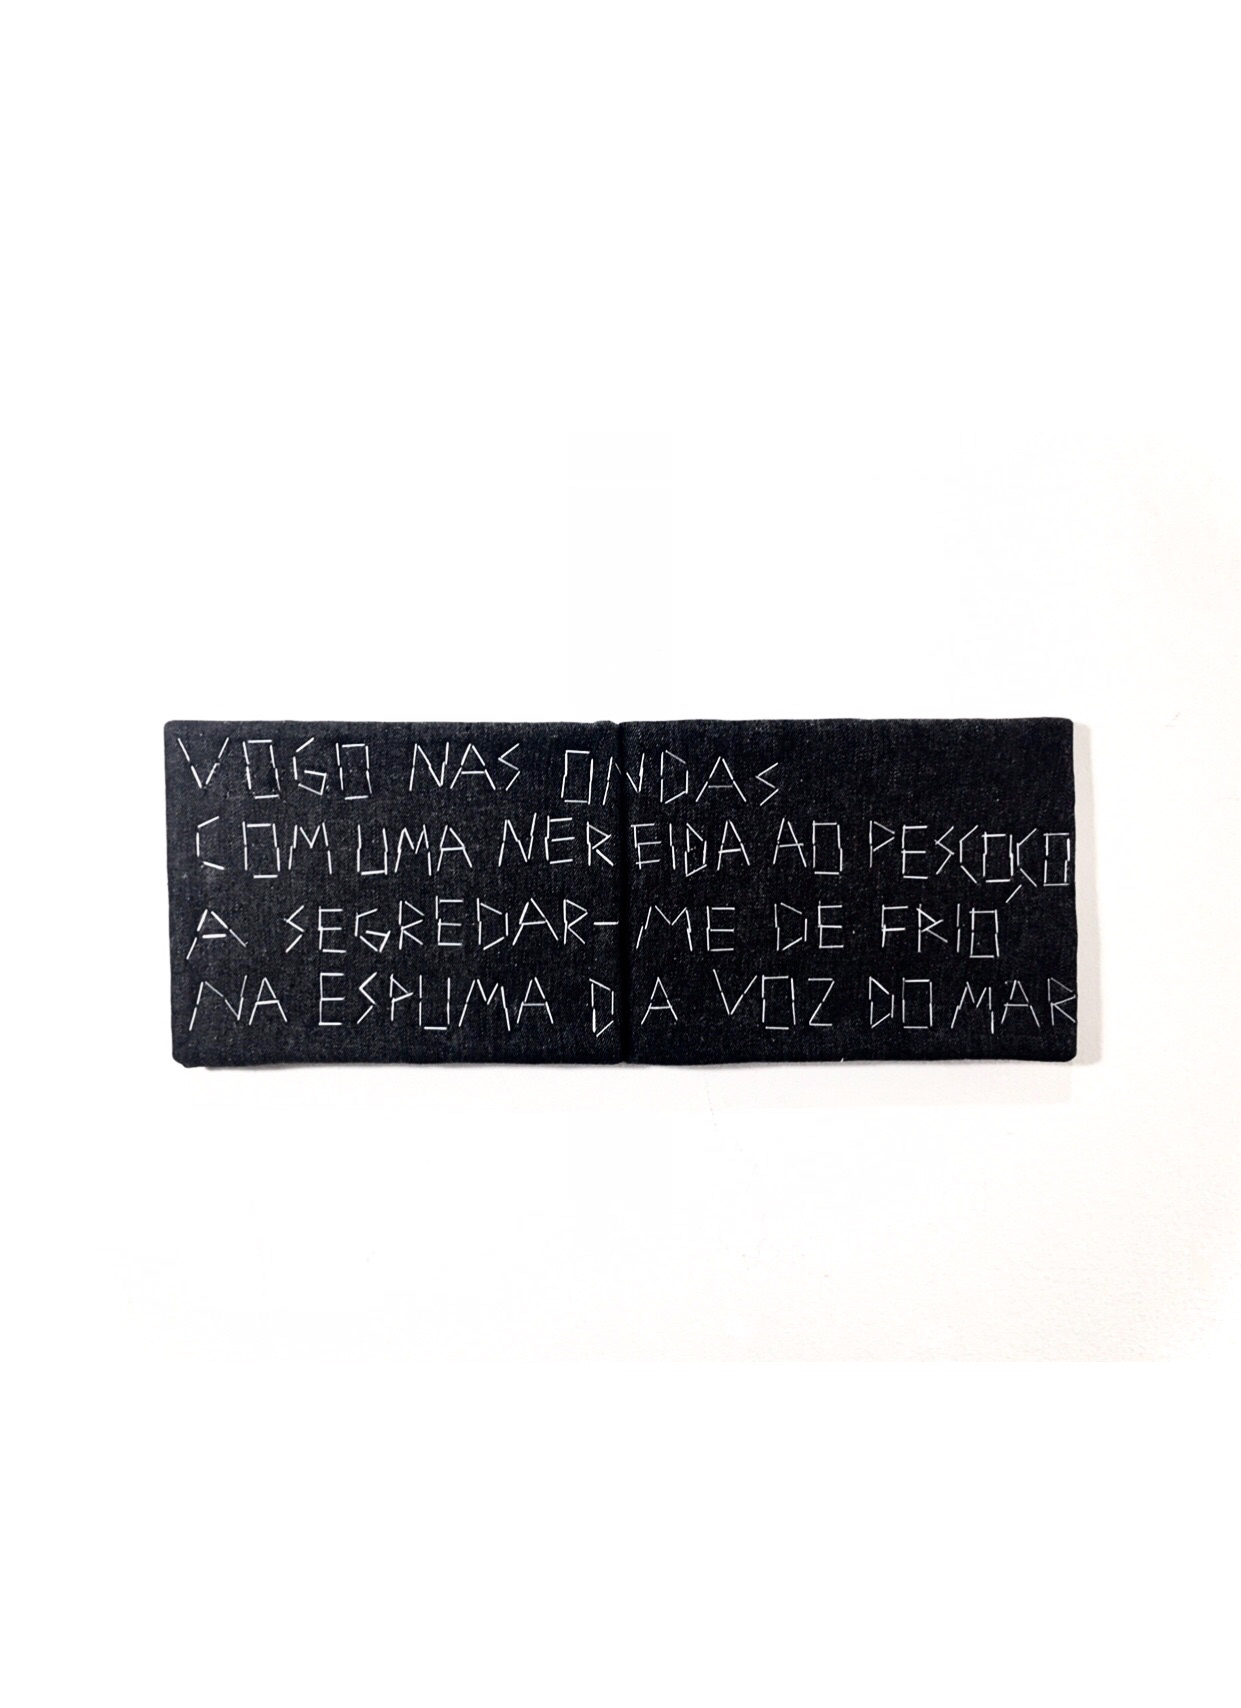 VOGO NAS ONDAS
COM UMA NEREIDA AO PESCOÇO
A SEGREDAR-ME DE FRIO
NA ESPUMA DA VOZ DO MAR